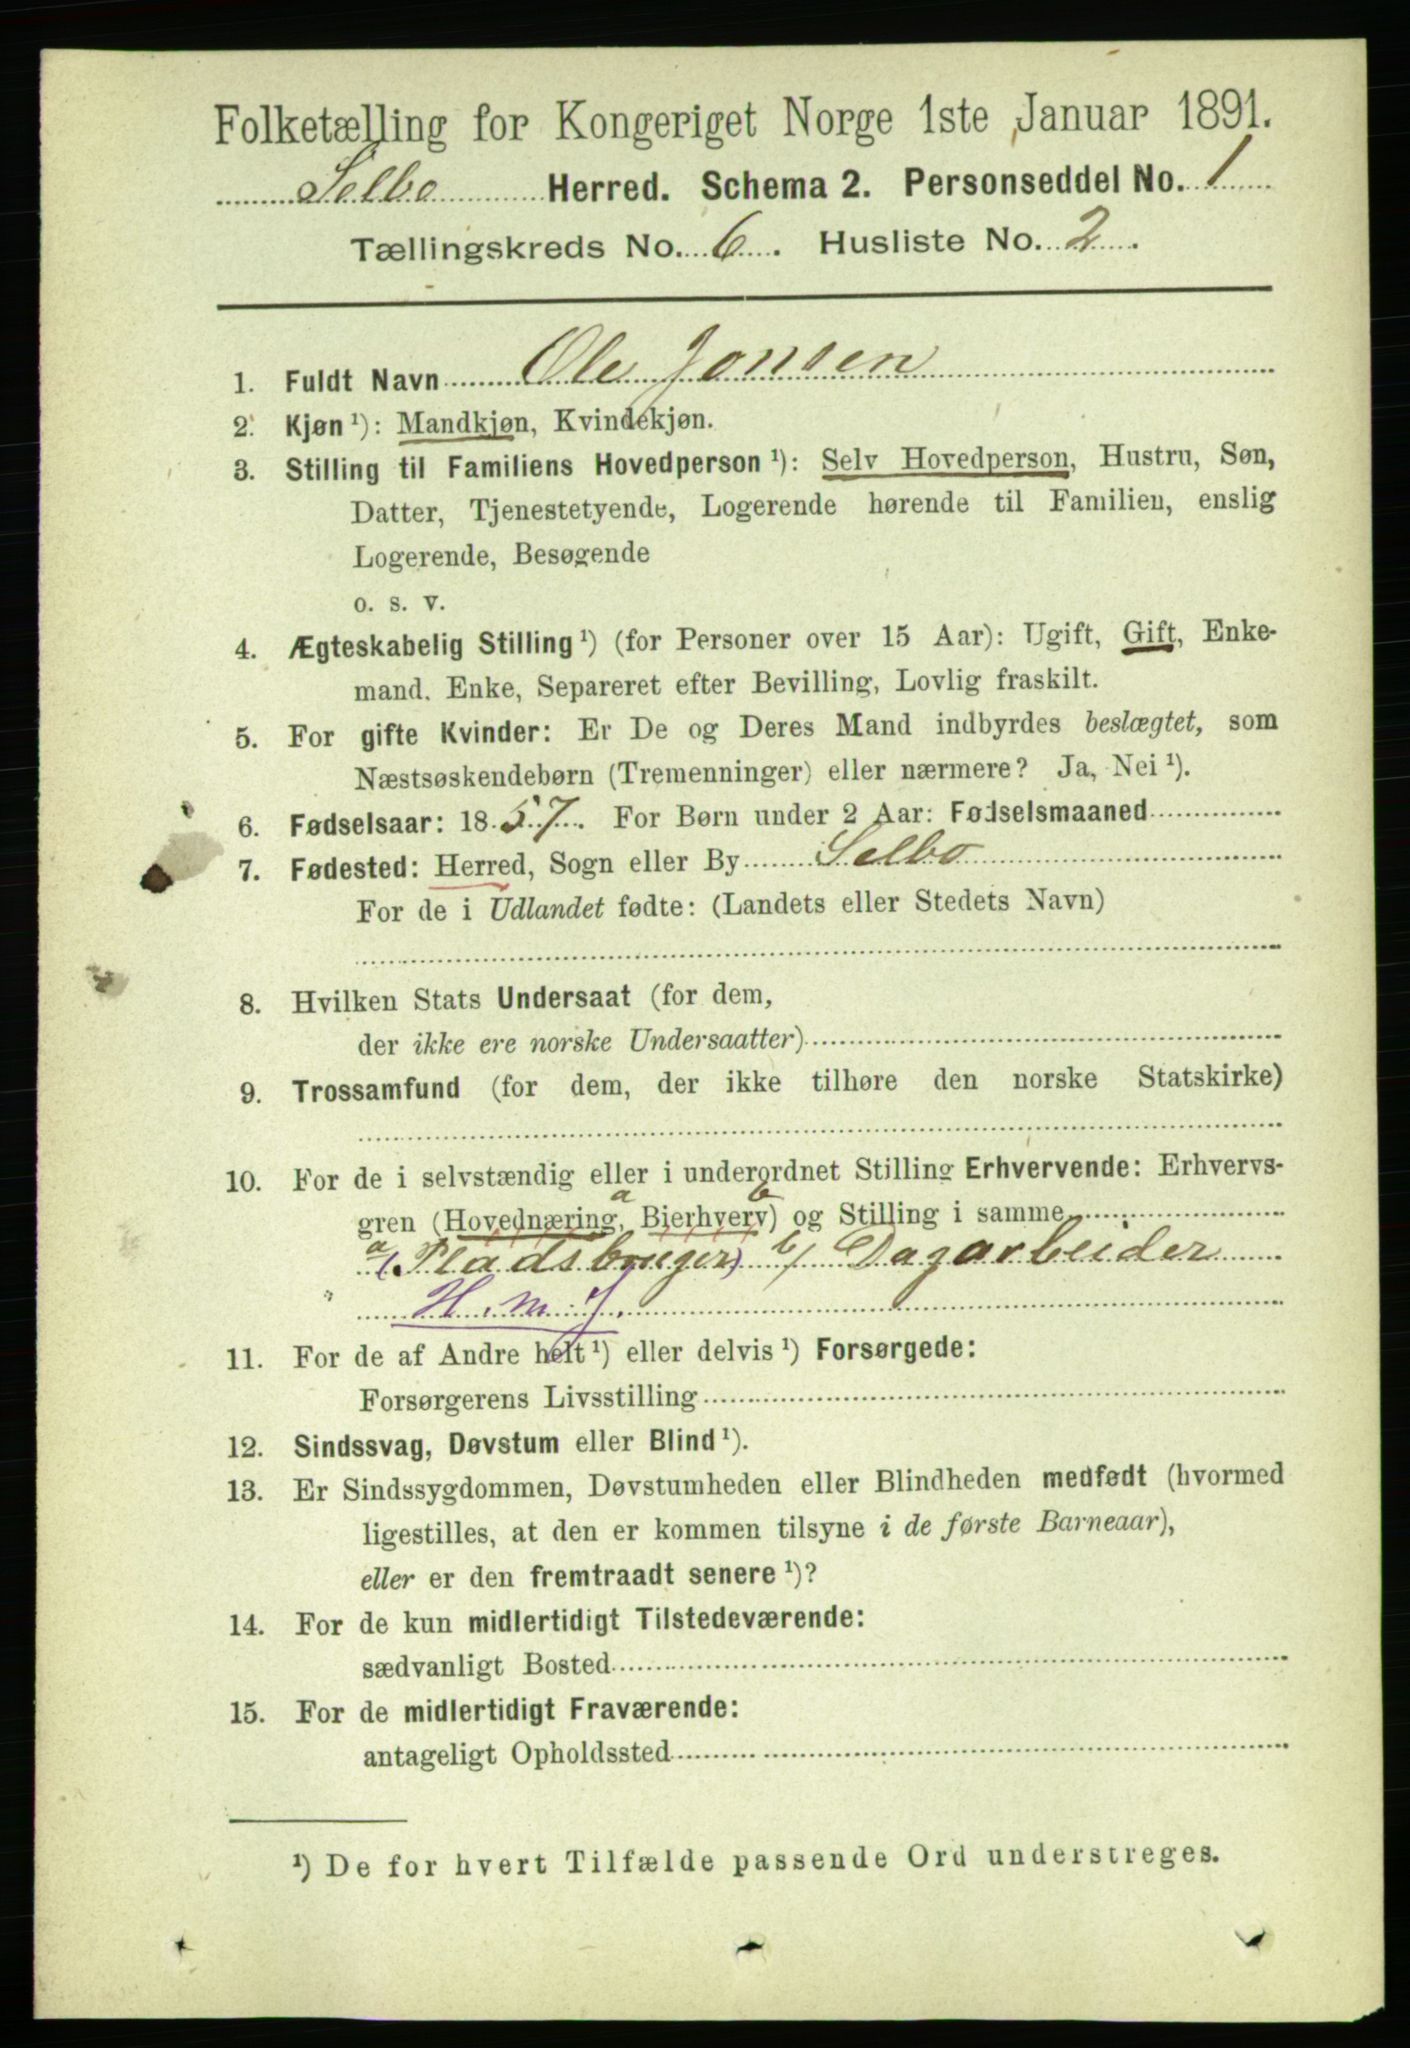 Folketælling for Kongeriget Norge 1ste Januar 1891.
Selbo Herred. Schema 2. Personseddel No. 1
Tællingskreds No. 6. Husliste No. 2.
1. Fuldt Navn Ole Jonsen
2. Kjøn ¹): Mandkjøn, Kvindekjøn.
3. Stilling til Familiens Hovedperson ¹): Selv Hovedperson, Hustru, Søn,
Datter, Tjenestetyende, Logerende hørende til Familien, enslig
Logerende, Besøgende
o. s. v.
4. Ægteskabelig Stilling ¹) (for Personer over 15 Aar): Ugift, Gift, Enke-
mand. Enke, Separeret efter Bevilling, Lovlig fraskilt.
5. For gifte Kvinder: Er De og Deres Mand indbyrdes beslægtet, som
Næstsøskendebørn (Tremenninger) eller nærmere? Ja, Nei ¹).
6. Fødselsaar: 1857. For Børn under 2 Aar: Fødselsmaaned
7. Fødested: Herred, Sogn eller By Selbo
For de i Udlandet fødte: (Landets eller Stedets Navn)
8. Hvilken Stats Undersaat (for dem,
der ikke ere norske Undersaatter)
9. Trossamfund (for dem, der ikke tilhøre den norske Statskirke)
10. For de i selvstændig eller i underordnet Stilling Erhvervende: Erhvervs-
a b
gren (Hovednæring, Bierhverv) og Stilling i samme
a/ (Pladsbruger) b/ Dagarbeider
H. m. J.
11. For de af Andre helt ¹) eller delvis ¹) Forsørgede:
Forsørgerens Livsstilling
12. Sindssvag, Døvstum eller Blind ¹).
13. Er Sindssygdommen, Døvstumheden eller Blindheden medfødt (hvormed
ligestilles, at den er kommen tilsyne i de første Barneaar),
eller er den fremtraadt senere ¹)?
14. For de kun midlertidigt Tilstedeværende:
sædvanligt Bosted
15. For de midlertidigt Fraværende:
antageligt Opholdssted
¹) De for hvert Tilfælde passende Ord understreges.